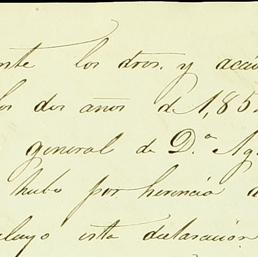 nte los dros. y acci
los dos años de 1,85
general de D.ª Ag
hubo por herencia d
cluyo esta declaracion